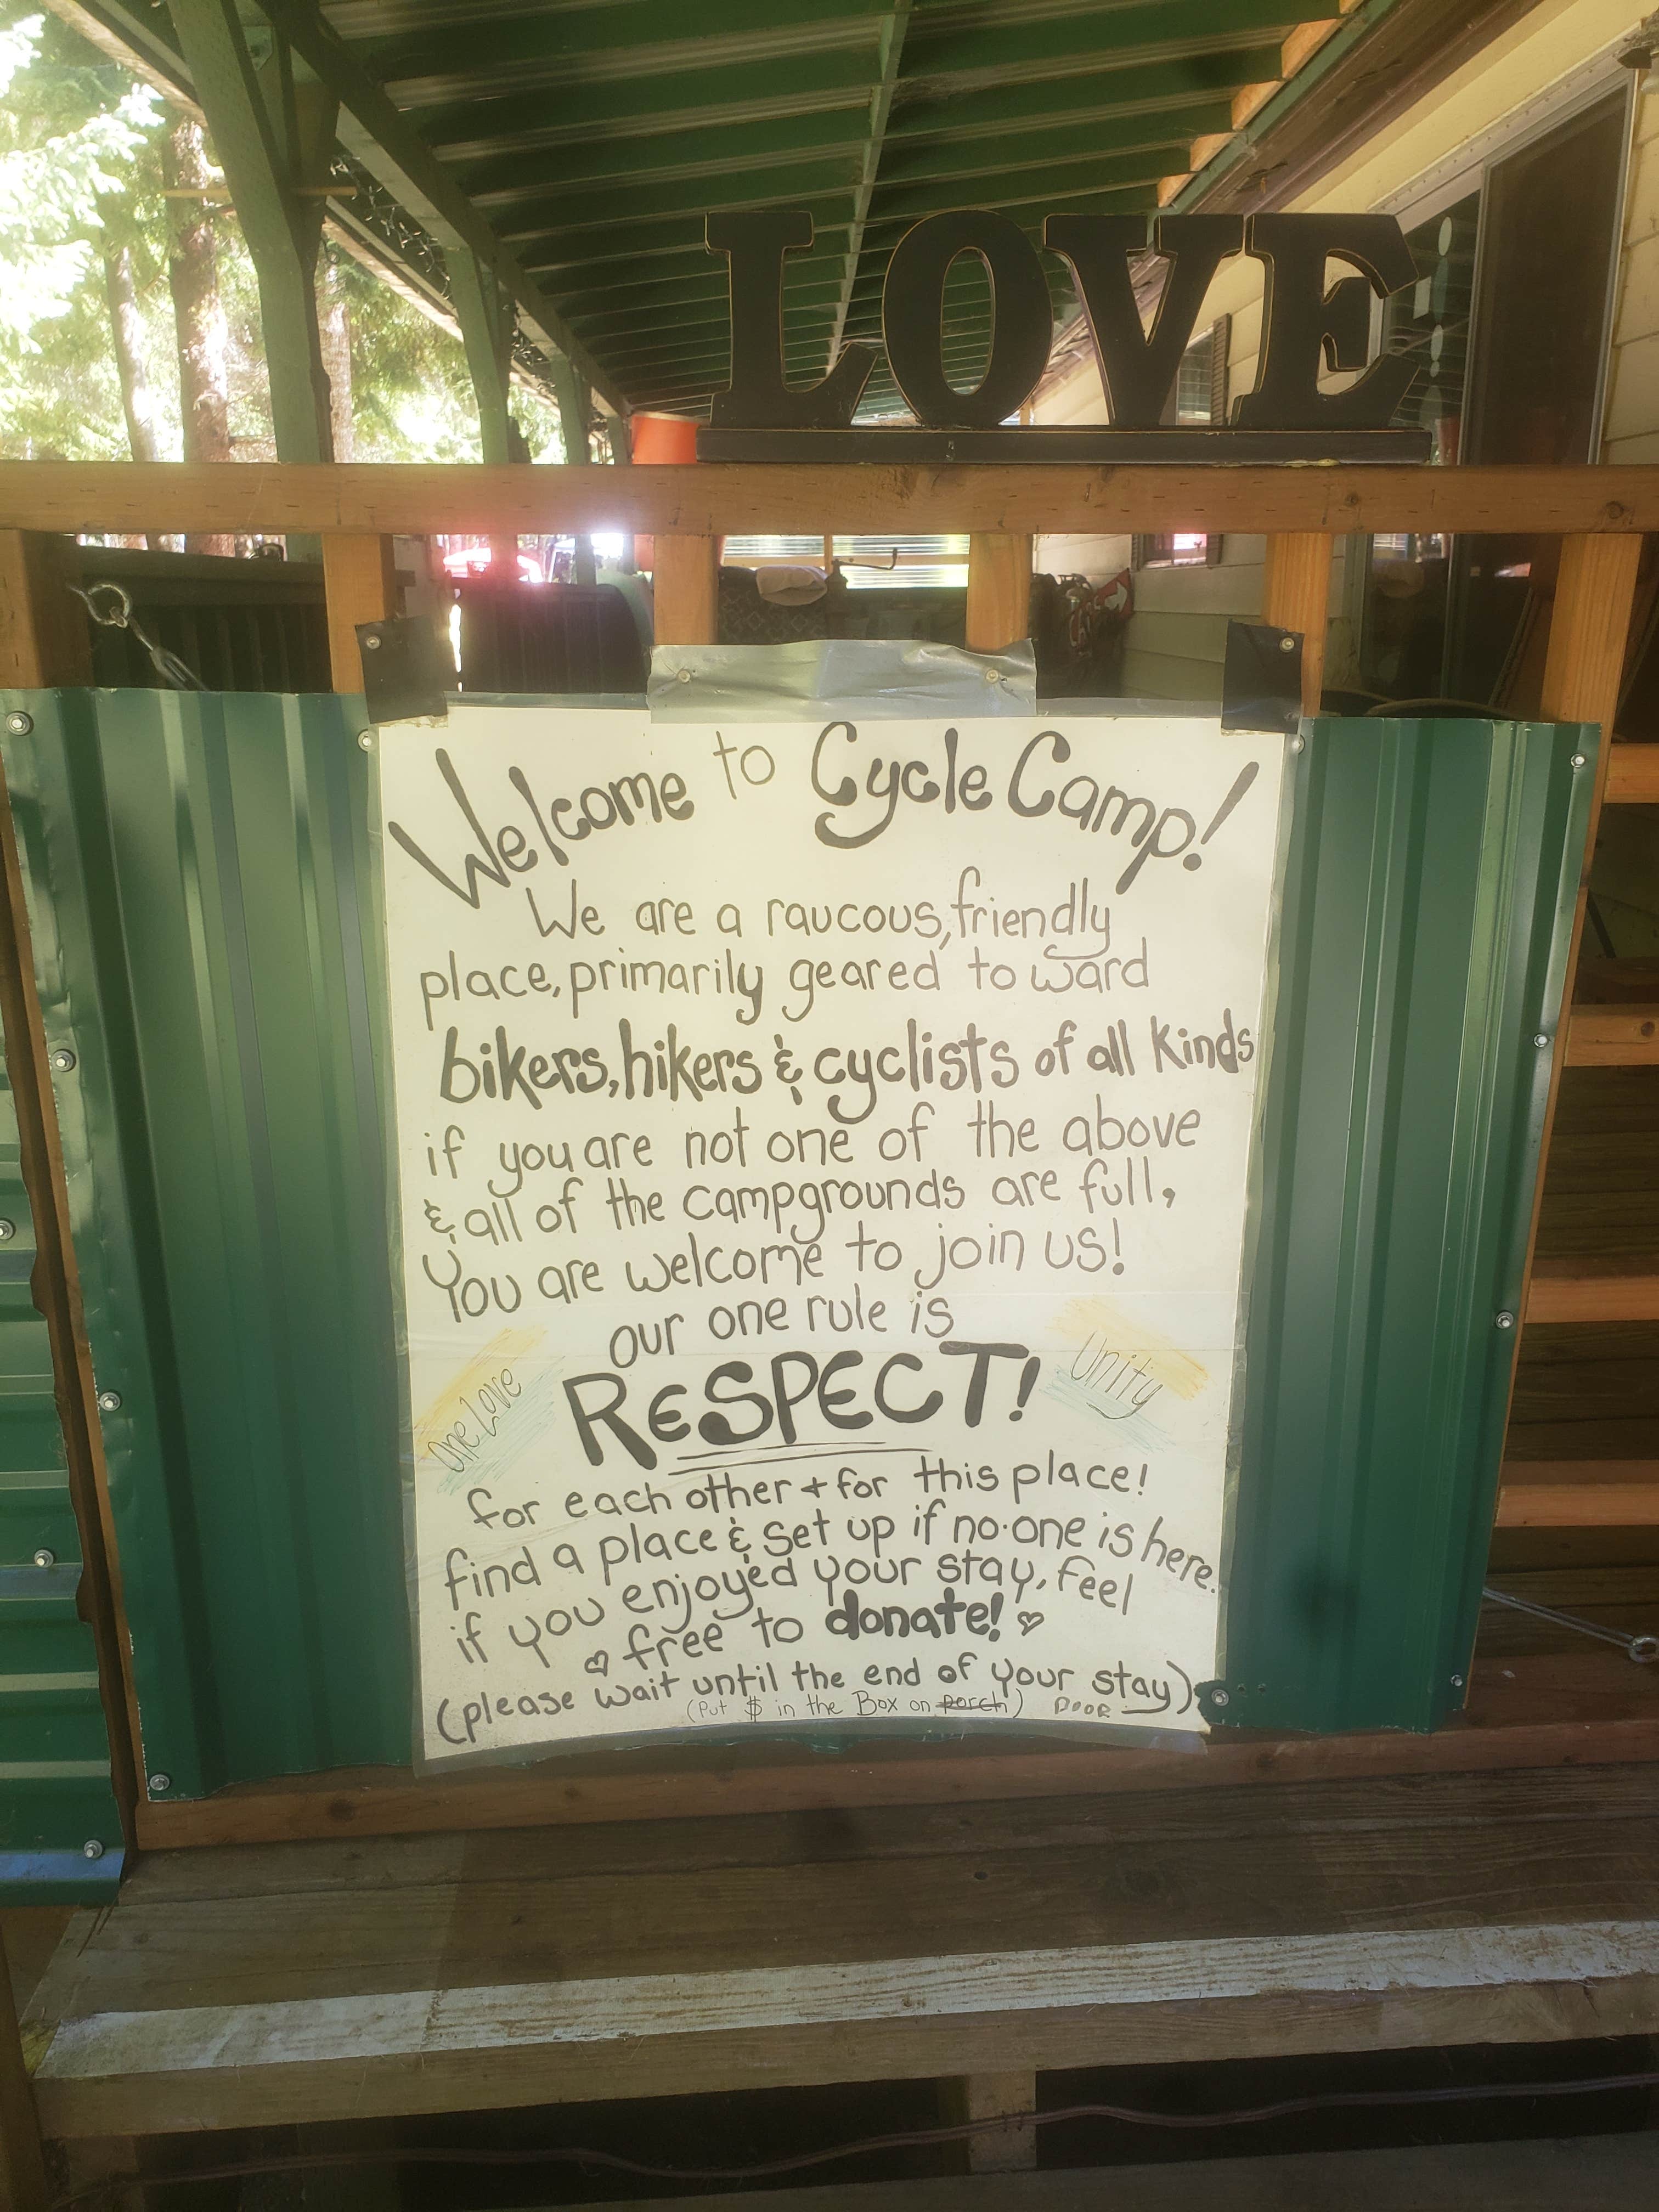 LOVE
Welcome to Cycle Camp!
We are a raucous, friendly
place, primarily geared to ward
bikers, hikers & cyclists of all kinds
if you are not one of the above
& all of the campgrounds are full,
You are welcome to join us!
our one rule is
One Love
RESPECT!
Unity
for each other + for this place!
find a place & set up if no·one is here.
if you enjoyed your stay, feel
♡ free to donate! ♡
(please wait until the end of your stay)
(Put $ in the Box on porch) DOOR